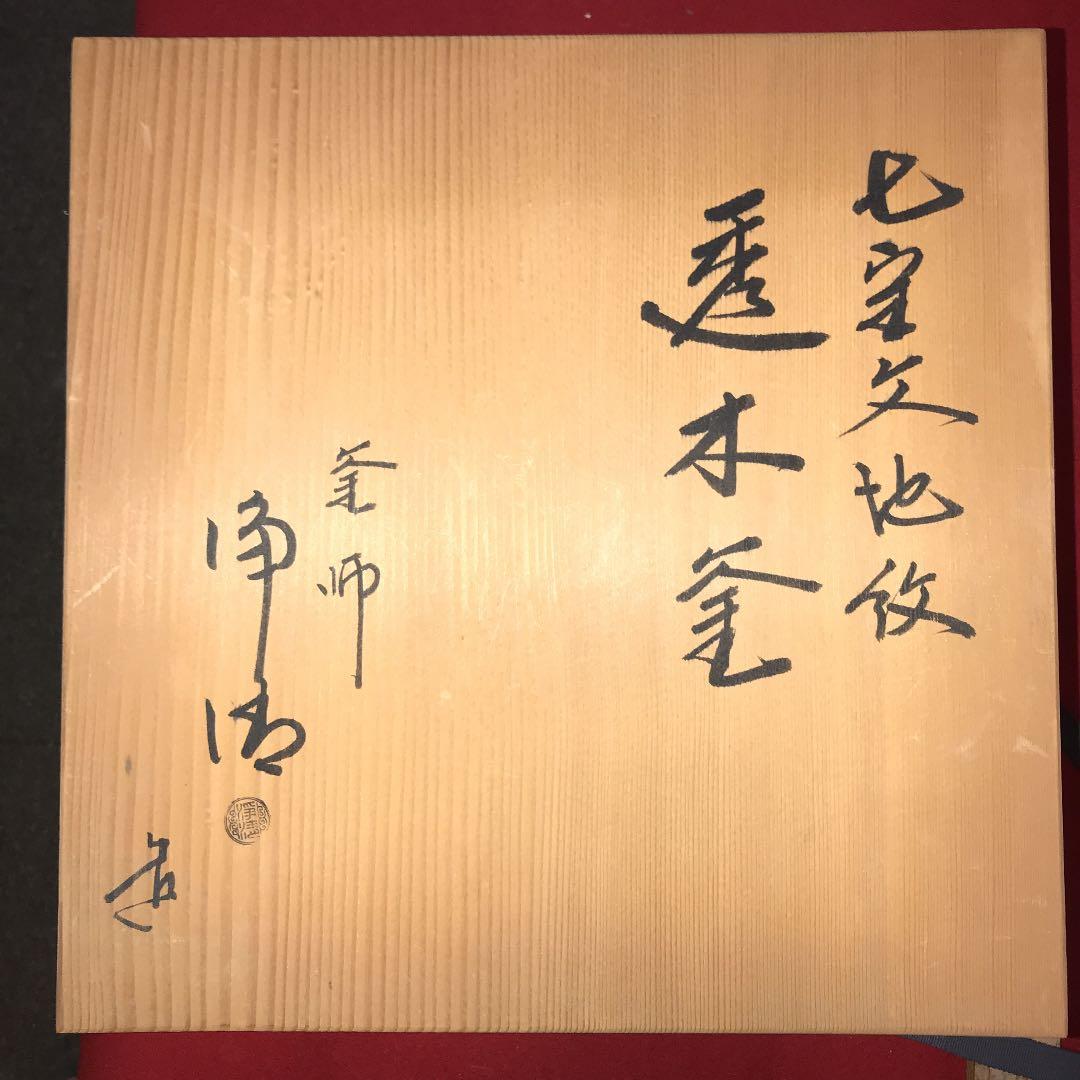 七宝文地紋
透木釜
釜師
浄清
造